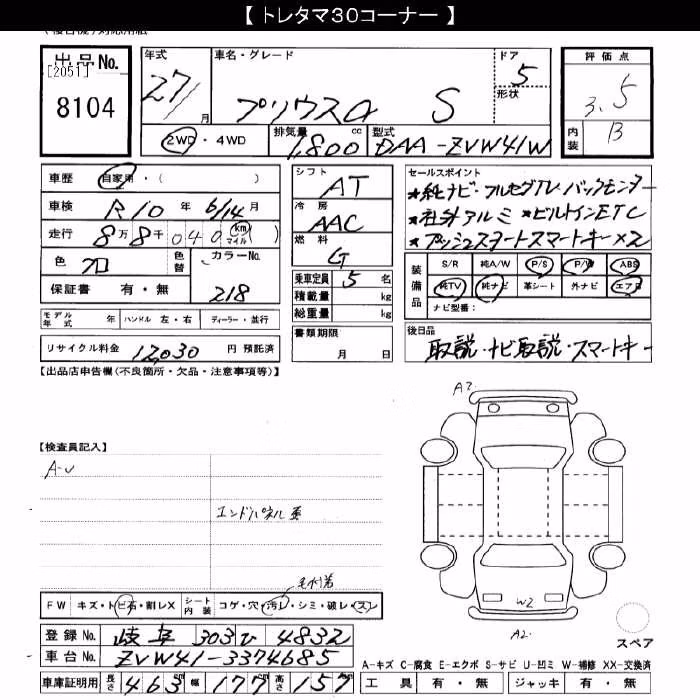 【 トレタマ30コーナー 】
出品No. [2051] 8104
年式 27/ 月
車名・グレード プリウスα S
ドア 5 形状
評価点 3.5
内装 B
2WD・4WD
排気量 1,800 cc
型式 DAA-ZVW41W
車歴 自家用・( )
車検 R10 年 6/14 月
走行 8万8千040 km マイル
色 クロ 色替 カラーNo. 218
保証書 有・無
シフト AT
冷房 AAC
燃料 G
乗車定員 5 名
積載量 kg
総重量 kg
書類期限 月 日
セールスポイント
★純ナビ・フルセグTV・バックモニター
★社外アルミ ★ビルトインETC
★プッシュスタートスマートキー×2
装備品
S/R 純A/W P/S P/W ABS
純TV 純ナビ 革シート 外ナビ エアB
ナビ型番:
モデル年式 年 ハンドル 左・右 ディーラー・並行
リサイクル料金 12,030 円 預託済
後日品 取説・ナビ取説・スマートキー
【出品店申告欄(不良箇所・欠品・注意事項等)】
【検査員記入】
A-U
エンドパネル歪
A2
W2
A2
FW キズ・トビ石・割レX シート内装 コゲ・穴・汚レ・シミ・破レ・スレ
スペア
登録No. 岐阜 303 ひ 4832
車台No. ZVW41-3374685
A-キズ C-腐食 E-エクボ S-サビ U-凹ミ W-補修 XX-交換済
車庫証明用 長さ 463 cm 幅 177 cm 高さ 157 cm
工具 有・無 ジャッキ 有・無